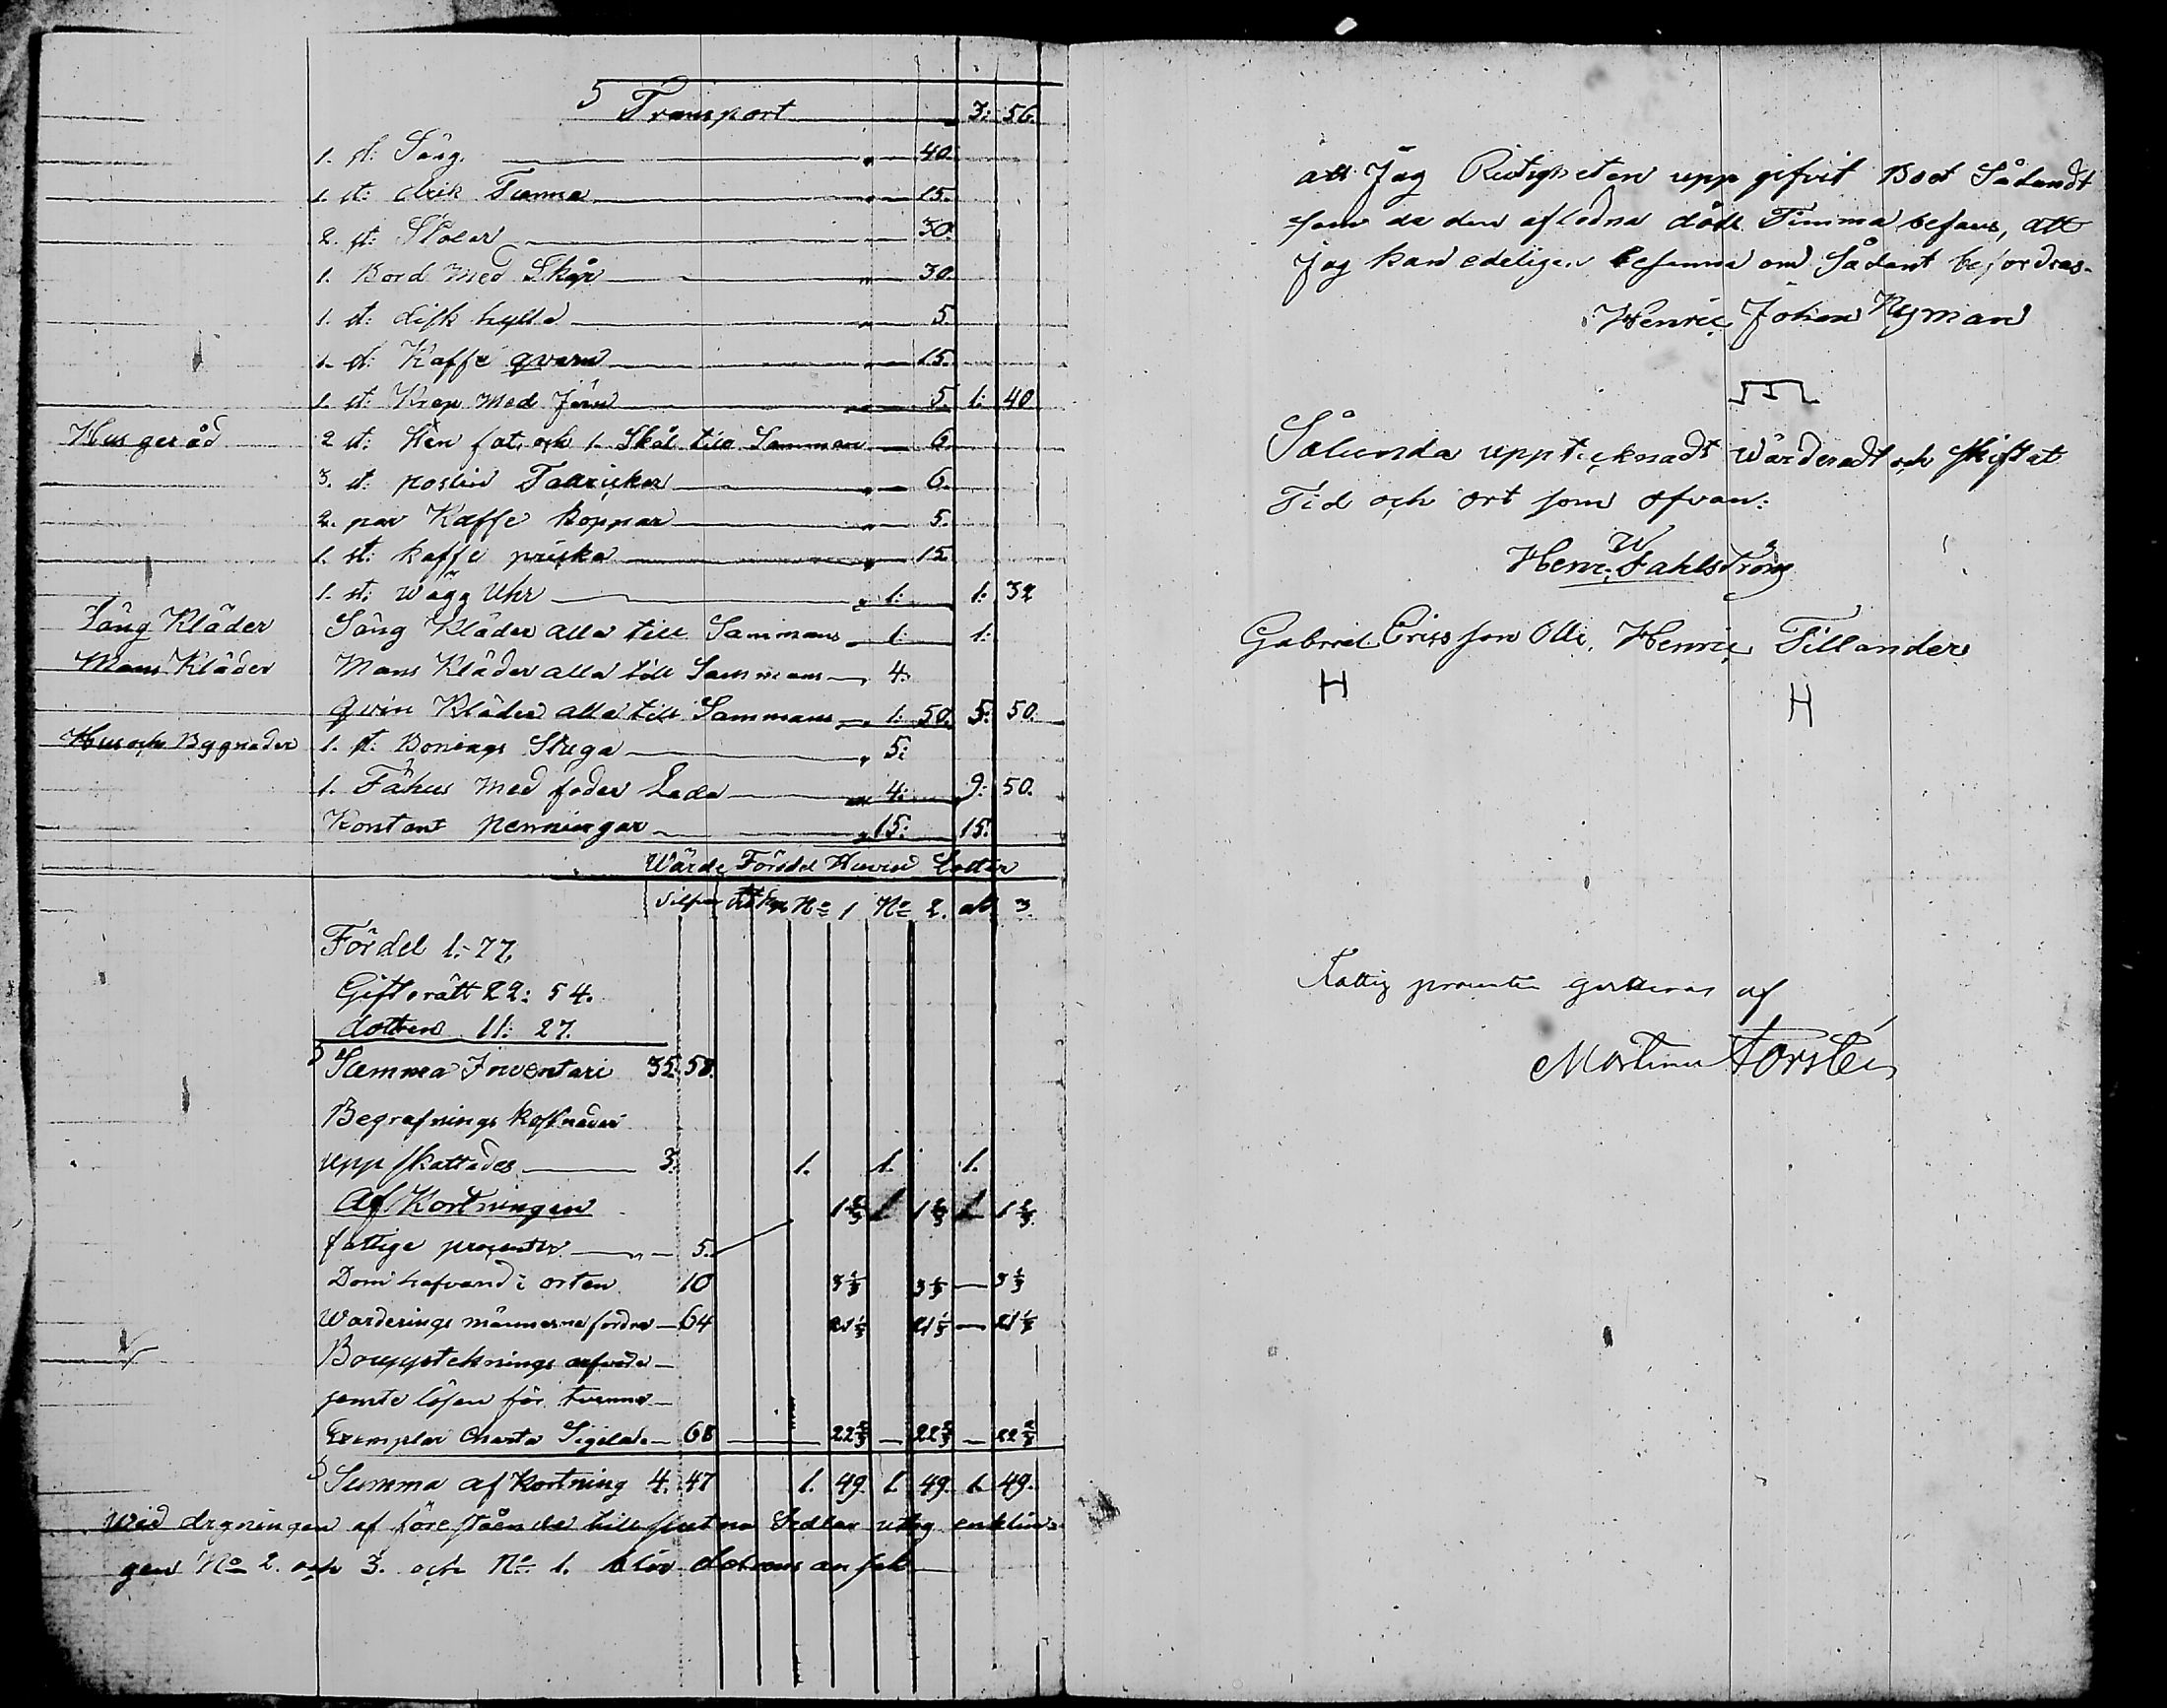 5 Transport 3: 56.
1. st: Säng 40.
1. st: drik Tunna 15.
2. st: Stolar 30.
1. Bord med Skåp 30.
1. st: disk hylla 5.
1. st: Kaffe qvarn 15.
1. st: Krop med Järn 5. 1: 40
Hus geråd 2 st: sten fat, och 1. Skål till Samman 6.
3. st: poslin Tallricker 6.
2. par Kaffe koppar 5.
1. st: kaffe priska 15
1. st: wägg Uhr 1: 1: 32
Säng Kläder Säng Kläder alla till Sammans 1: 1:
Mans Kläder Mans Kläder alla till Sammans 4:
qvin Kläder alla till Sammans 1: 50. 5: 50.
Hus och Bygnader 1. st: Bonings Stuga 5:
1. Fähus med foder Lada 4: 9: 50.
Kontant penningar 15: 15.
Wärde Fördel Huvud Lotter
Silfver No 1 No 2. 3.
Fördel 1:77.
Giftorätt 22: 54.
dottren 11: 27.
5 Summa Inventari 35: 58.
Begrafnings kostnader
upp skattades 3: 1. 1. 1.
Af Kortningen 1 2/3 1 1 2/3 1 1 2/3
fattige procenter 5.
Domhafvand i orten 10 3 1/3 3 1/3 3 1/3
Värderings männerne fordra 64 21 1/3 21 1/3 21 1/3
Bouppteknings arfvode
jemte lösen för tvenne
Exemplar Charta Sigilata 68 22 2/3 22 2/3 22 2/3
5 Summa af Kortning 4. 47 1. 49 1. 49. 1. 49.
wid dragningen af föreståënde till slutna Sedlar utog enklin-
gen No 2. och 3. och No 1. blir dotrens an del
att Jag Rigtigheten upp gifvit Boet Sådandt
som de den aflidna döde Timma befans, att
Jag kan edeligen besanna om Sådant befordras.
Henric Johan Nyman
Sålunda uppteçknadt wärderadt och skiftat
Tid och ort som ofvan:
Henr: W Fahlström
Gabriel Ericsson Olli. Henric Tillander
H H
Fattig procenten qvitteras af
Mårtin Forstén